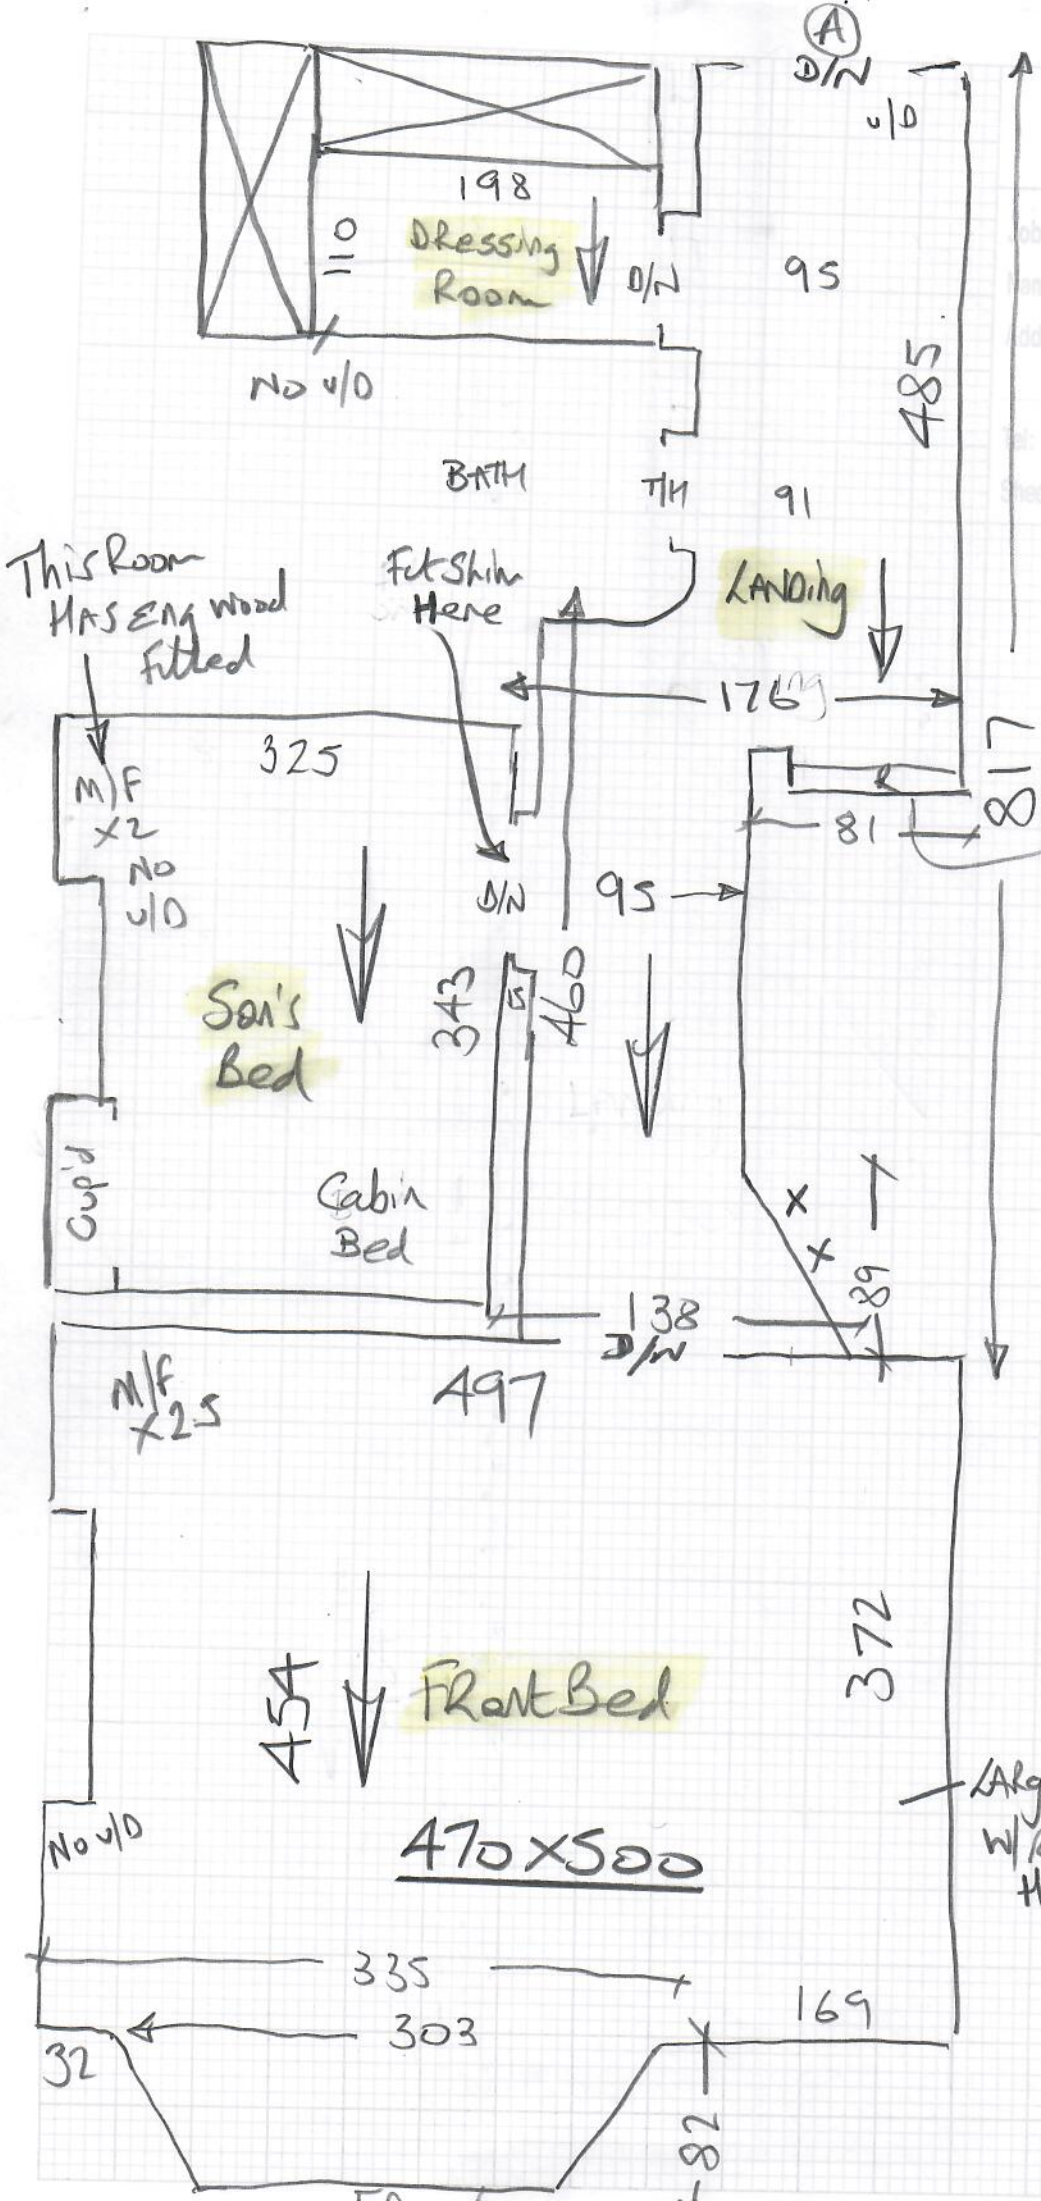 A
D/N
u/D
198
110
DRessing
Room
D/N
95
485
No u/D
BATH
T/H
91
This Room
HAS Eng wood
Fitted
Fit Shim
Here
LANDing
176
817
325
M/F
X2
No
u/D
R
81
D/N
95
343
460
Son's
Bed
Cup'd
Cabin
Bed
X
X
89
138
D/N
497
M/F
X2s
372
454
FRont Bed
No u/D
470 X 500
LARg
W/
H
335
169
303
32
82